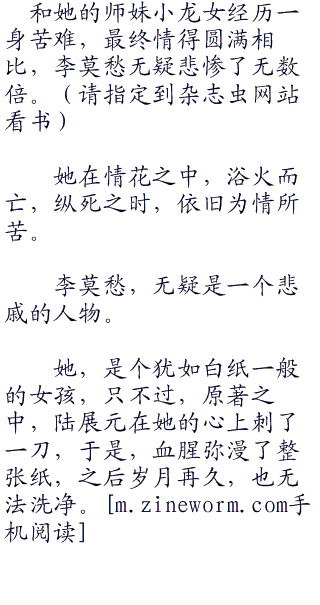 和她的师妹小龙女经历一
身苦难，最终情得圆满相
比，李莫愁无疑悲惨了无数
倍。（请指定到杂志虫网站
看书）
她在情花之中，浴火而
亡，纵死之时，依旧为情所
苦。
李莫愁，无疑是一个悲
戚的人物。
她，是个犹如白纸一般
的女孩，只不过，原著之
中，陆展元在她的心上刺了
一刀，于是，血腥弥漫了整
张纸，之后岁月再久，也无
法洗净。[m.zineworm.com手
机阅读]